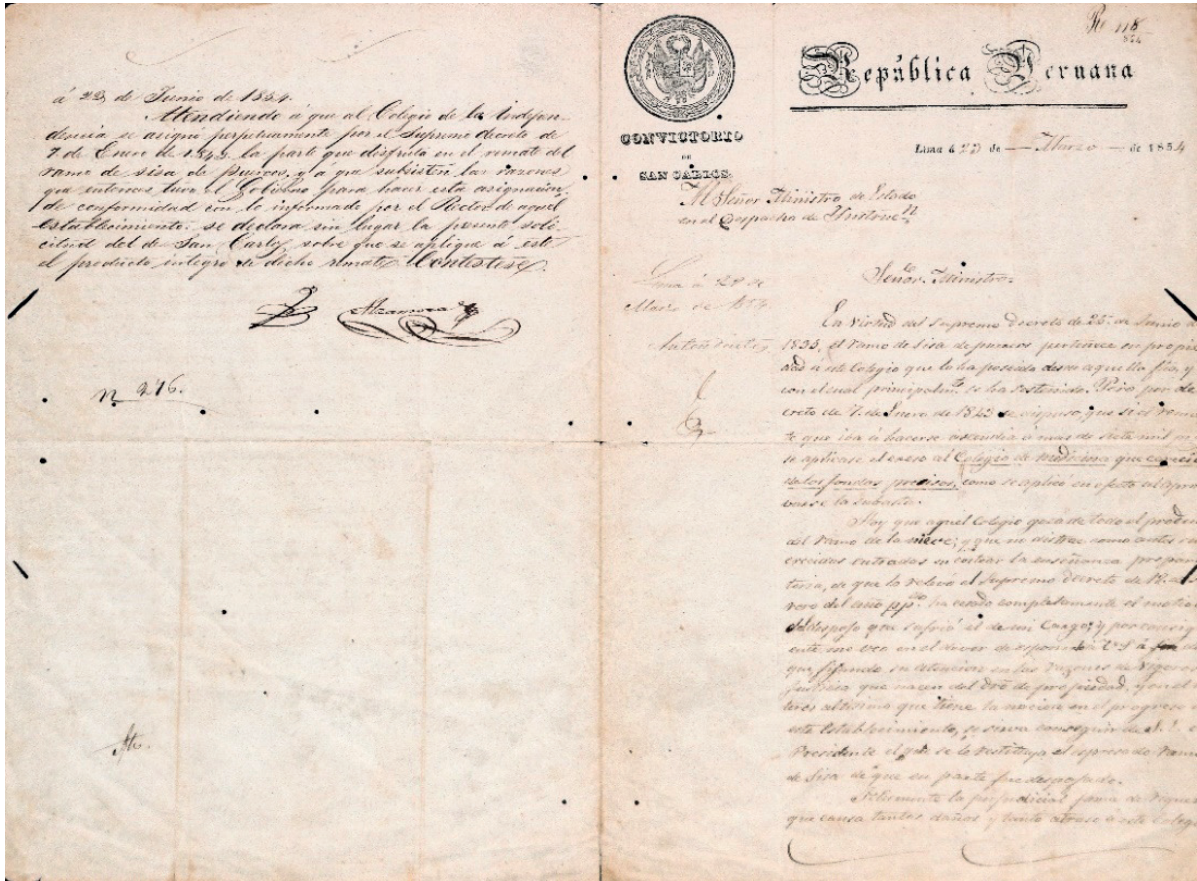 á 22 de Junio de 1854.
Atendiendo á que al Colegio de la Indepen-
dencia se asignó perpetuamente por el Supremo decreto de
7 de Enero de 1843 la parte que disfruta en el remate del
ramo de sisa de puercos, y á que subsisten las razones
que entonces tuvo el Gobierno para hacer esta asignacion,
de conformidad con lo informado por el Rector de aquel
establecimiento: se declara sin lugar la presente soli-
citud del de San Carlos, sobre que se aplique á este
el producto integro de dicho remate. Contestese.
Alzamora
N 276.
CONVICTORIO
DE
SAN CARLOS.
República Peruana
Lima á 23 de Marzo de 1854
Al Señor Ministro de Estado
en el Despacho de
Lima á 28 de
Marzo de 1854
Señor Ministro
En virtud del Supremo Decreto de 25 de Junio
1835, el ramo de sisa de puercos pertenece en propie
dad á este Colegio que lo ha poseido desde aquella fha, y
con el cual principalmte se ha sostenido. Pero por de
creto de 7 de Enero de 1843 se dispuso, que si el rema
te que iba á hacerse ascendia á mas de siete mil
se aplicase el exeso al Colegio de medicina que carecia
de los fondos precisos, como se aplicó en efecto al apro
barse la subasta.
Hoy que aquel Colegio goza de todo el produc
del ramo de la nieve; y que no distrae como antes sus
crecidas entradas en costear la enseñanza prepara
toria, de que lo relevó el Supremo decreto de 12 de
rero del año ppdo ha cesado completamente el motivo
del despojo que sufrió el de mi Cargo; y por consigui
ente me veo en el deber de á US á fin de
que, fijando su atencion en las razones de rigorosa
justicia que nacen del dro de propiedad, y en el
teres altisimo que tiene la nacion en el progreso
este Establecimiento, se sirva conseguir de S. E.
Presidente el que se le restituya el espresado ramo
de Sisa de que en parte fue despojado.
la perjudicial
que causa tantos daños y tanto atraso á este Colegio